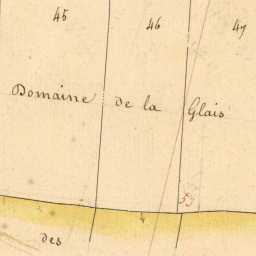 45 46 47
Domaine de la Glais
53
des